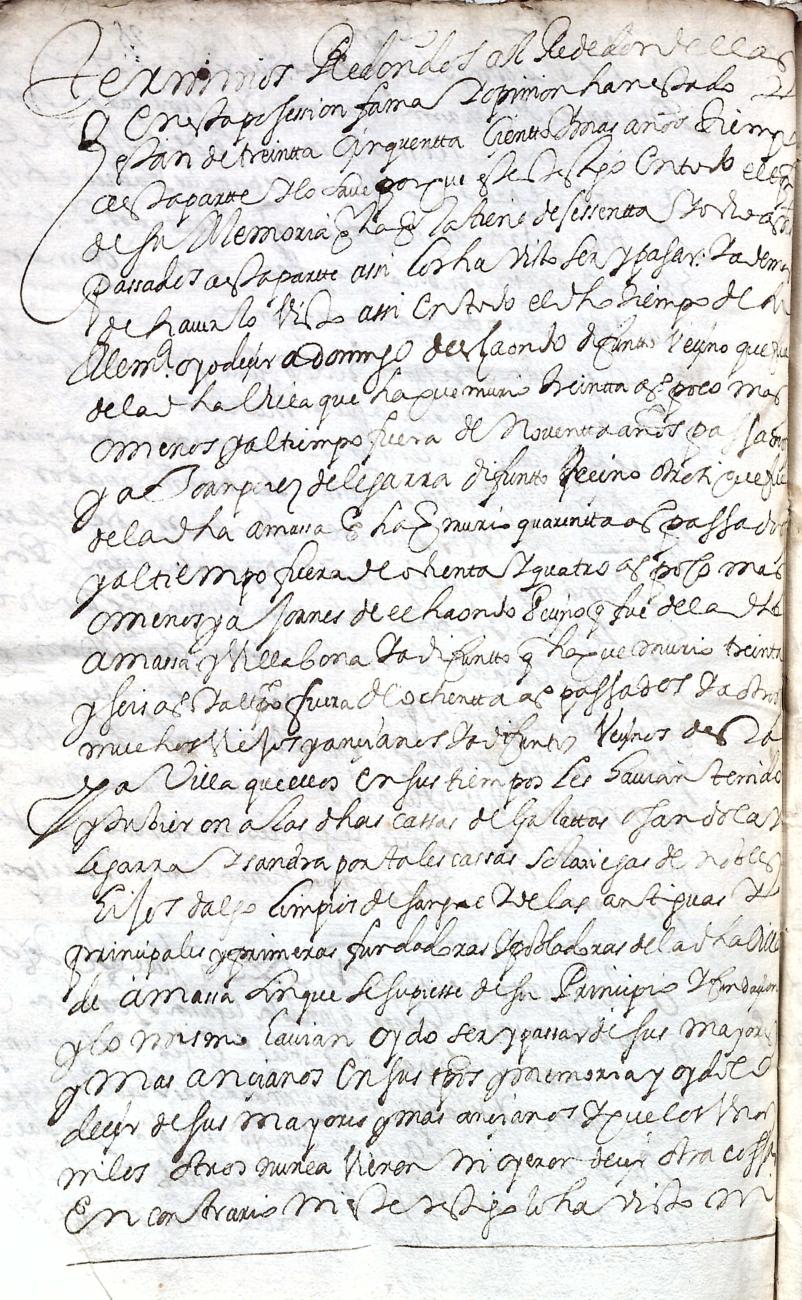 terminos Redondos al Rededor dellas y
en esta posession fama y opinion han estado y
estan de treintta cinquentta cientto y mas años tiempo
a esta partte y lo save porque este testigo en todo el tpo
de su Memoria q ha q la tiene de sessentta y ocho as
passados a esta partte assi los ha visto ser y pasar: y demas
de haverlo Visto assi en todo el dho tiempo de su
Mema oyo decir a domingo de echaondo difuntto Vecino que fue
de la dha Villa que ha que murio treintta as poco mas
o menos y al tiempo fuera de Noventta años passados
y a Joan perez de legarra difuntto Vecino que fue
de la dha amassa q ha q murio quarentta as passados
y al tiempo fuera de ochenta y quatro as poco mas
o menos y a Joanes de echaondo Vecino q fue de la dha
amassa y Villabona ya difuntto q ha que murio treinta
y seis as y al tpo fuera de ochentta as passados y a otros
muchos Viejos y ancianos ya difuntos Vecinos de la
dha Villa que ellos en sus tiempos les havian tenido
y tubieron a las dhas cassas de
legarra y sandra por tales cassas solariegas de nobles
hijos dalgo limpios de sangre y de las antiguas y
principales y primeras fundadoras y pobladoras de la dha Villa
de amassa sin que se supiesse de su Principio y fundacion
y lo mismo havian oydo ser y passar de sus mayores
y mas ancianos en sus tpos y memoria y oydole
decir de sus mayores y mas ancianos y que los Unos
ni los otros nunca Vieron ni oyeron decir otra cossa
En contrario ni este testigo lo ha visto ni